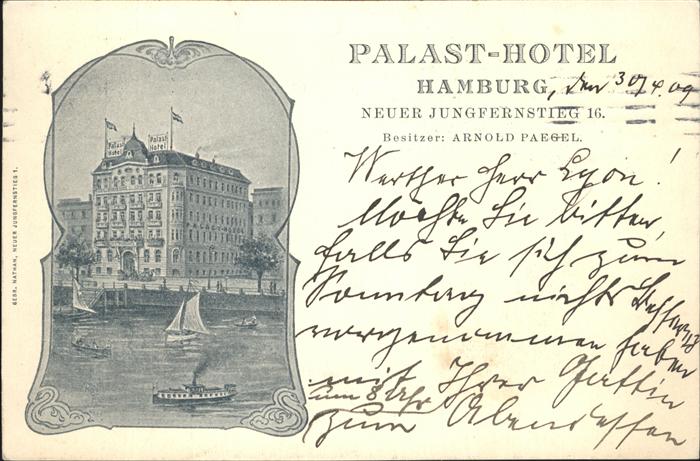 PALAST-HOTEL
HAMBURG, den 30/4.09
NEUER JUNGFERNSTIEG 16.
Besitzer: ARNOLD PAEGEL.
Werther Herr Lyon!
Möchte Sie bitten,
falls Sie sich zum
Sonntag nichts Besseres
vorgenommen haben
mit Ihrer Gattin
um 8 Uhr
zum Abendessen
Palast Hotel
Palast Hotel
PALAST-HOTEL
GEBR. NATHAN, NEUER JUNGFERNSTIEG 1.